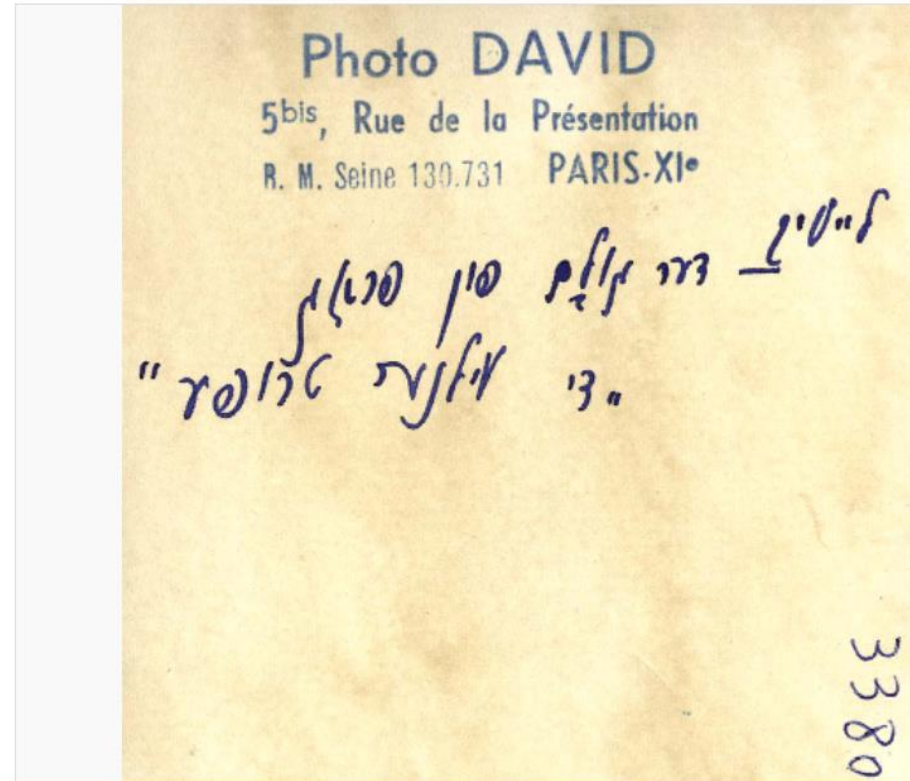 Photo DAVID
5bis, Rue de la Présentation
R. M. Seine 130.731 PARIS-XIe
לייוויק — דער גולם פון פראג
"די ווילנער טרופע"
3380